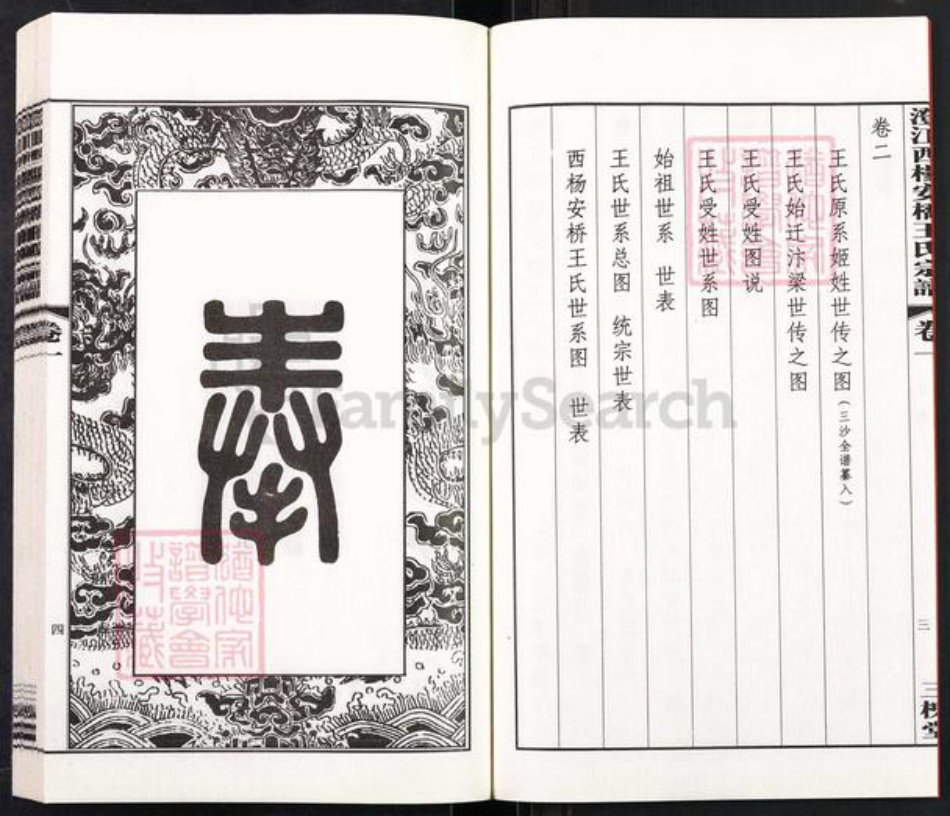 卷二
王氏原系姬姓世传之图(三沙全谱纂入)
王氏始迁汴梁世传之图
王氏受姓图说
王氏受姓世系图
始祖世系 世表
王氏世系总图 统宗世表
西杨安桥王氏世系图 世表
江西楊安橋王氏宗譜
卷一
三
三槐堂
奉
卷一
四
FamilySearch
譜學會
收藏